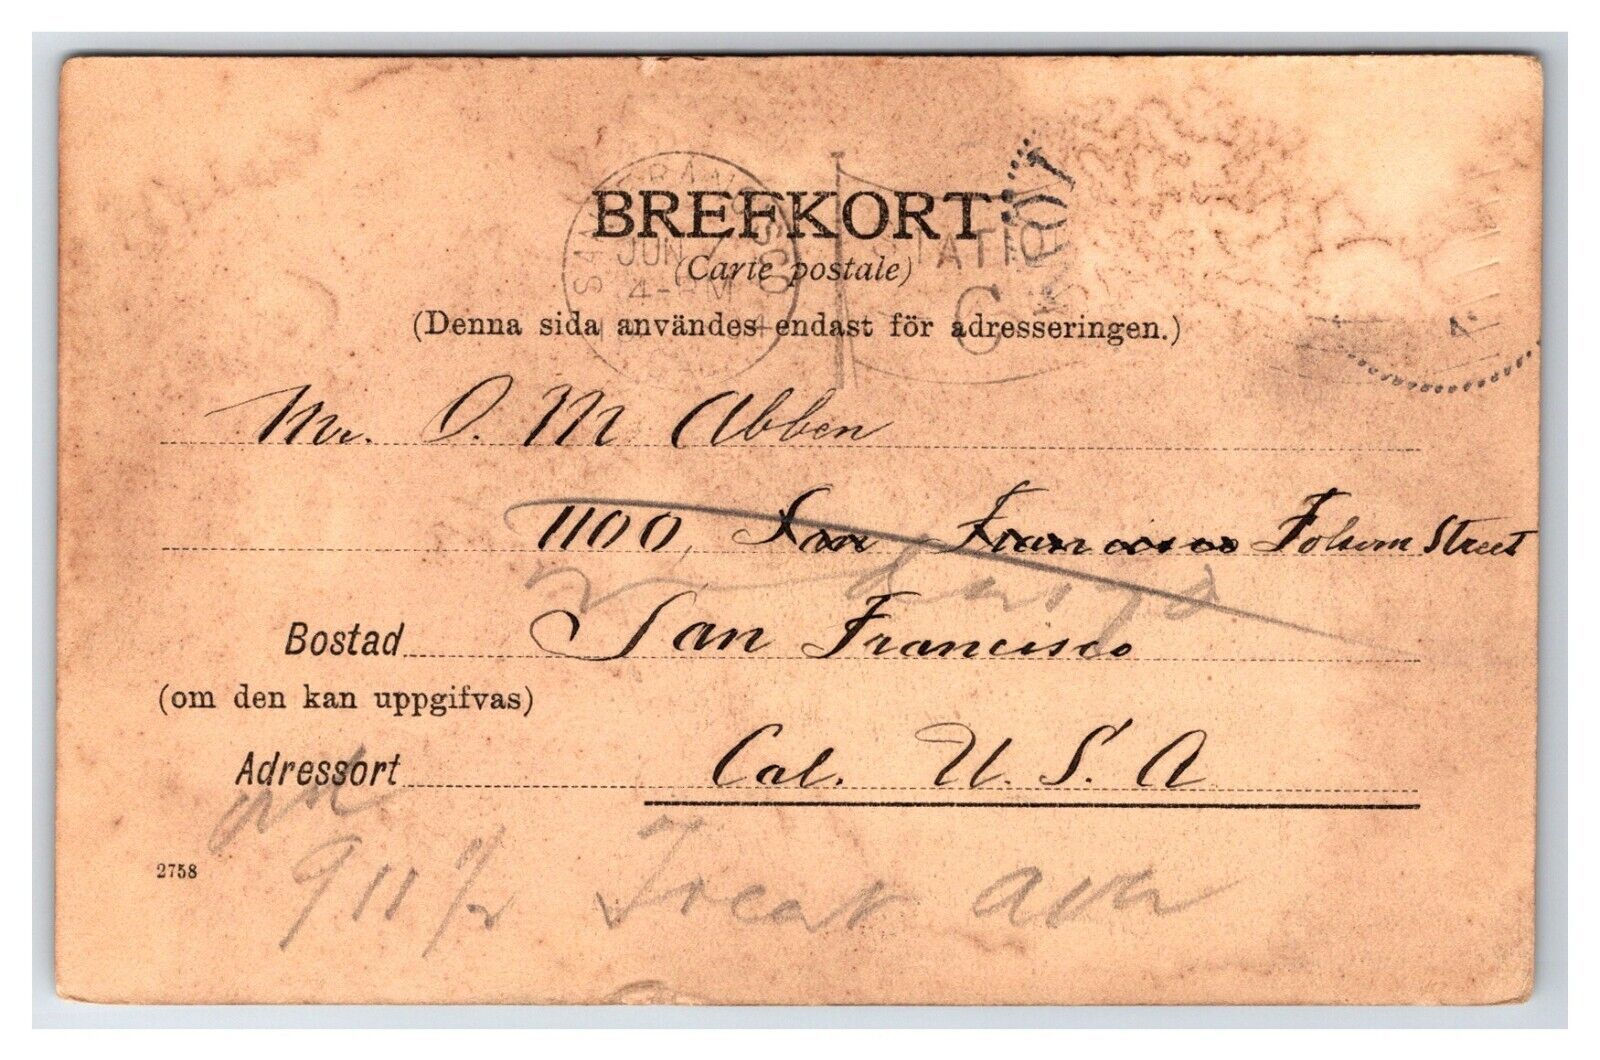 BREFKORT
(Carte postale)
SAN FRANCISCO
JUN
4-PM
STATION
C
(Denna sida användes endast för adresseringen.)
Mr. O. M Abben
1100, San Francisco Folsom Street
Bostad San Francisco
(om den kan uppgifvas)
Adressort Cal. U. S. A
2758
911 1/2 Treat ave